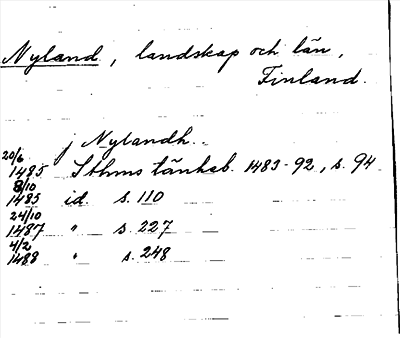 Nyland, landskap och län,
Finland.
j Nylandh..
20/6 1485 Sthms tänkeb. 1483-92, s. 94
8/10 1485 id. s. 110
24/10 1487 " s. 227
4/2 1488 " s. 248